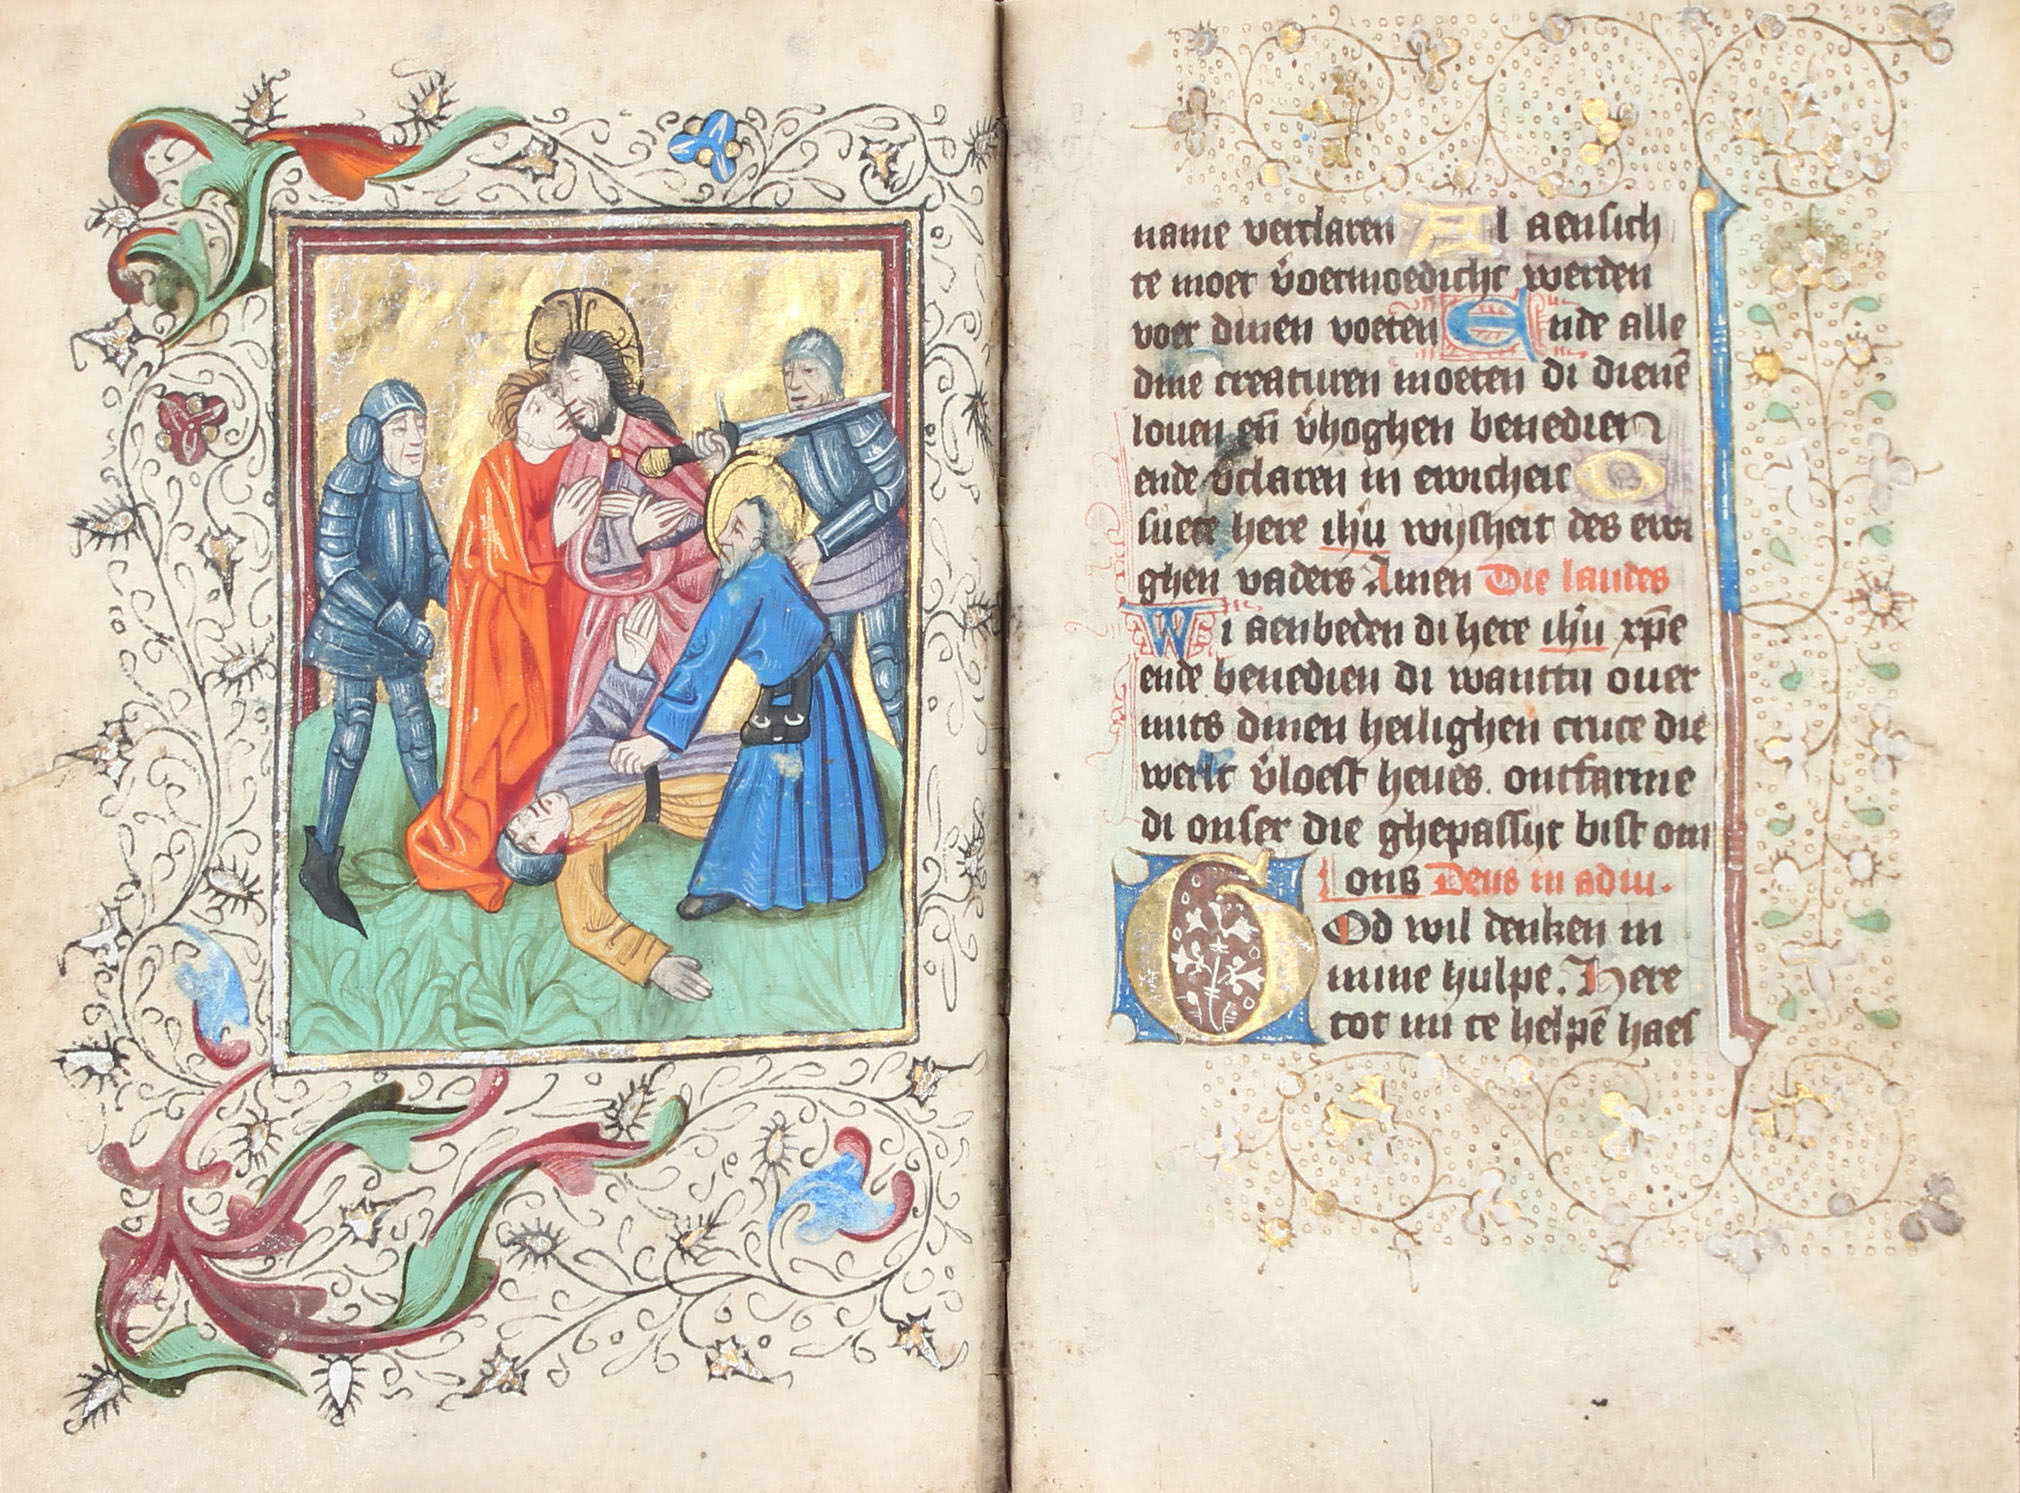 name verclaren Al aensich
te moet v̄oetmoedicht werden
voer dinen voeten Ende alle
dine creaturen moeten di dienē
louen en̄ v̄hoghen benedien
ende v̄claren in ewicheit O
suete here ihū wijsheit des ewi
ghen vaders Amen Die laudes
Wi aenbeden di here ihū xp̄e
ende benedien di wanttu ouer
mits dinen heilighen cruce die
werlt v̄loest heues. ontfarme
di onser die ghepassijt bist om
ons Deus in adiu.
God wil denken in
mine hulpe. Here
tot mi te helpē haes